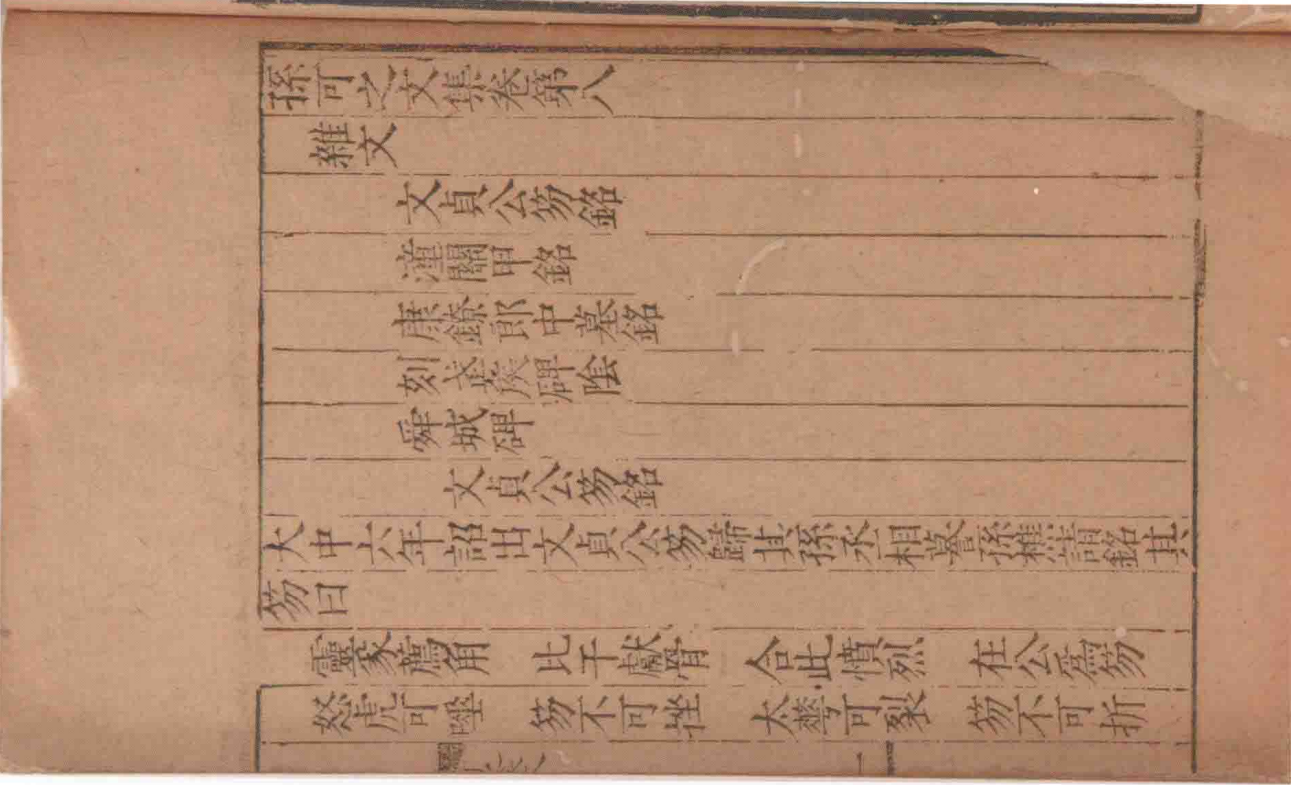 孫可之文集卷第八
雜文
文貞公笏銘
潼關甲銘
康鐐郎中墓銘
刻武侯碑陰
舜城碑
文貞公笏銘
大中六年詔出文貞公笏歸其孫丞相謩孫樵請銘其
笏曰
靈豸薦角 比干獻骨 合此憤烈 在公爲笏
怒虎可唑 笏不可挫 太華可裂 笏不可折
一